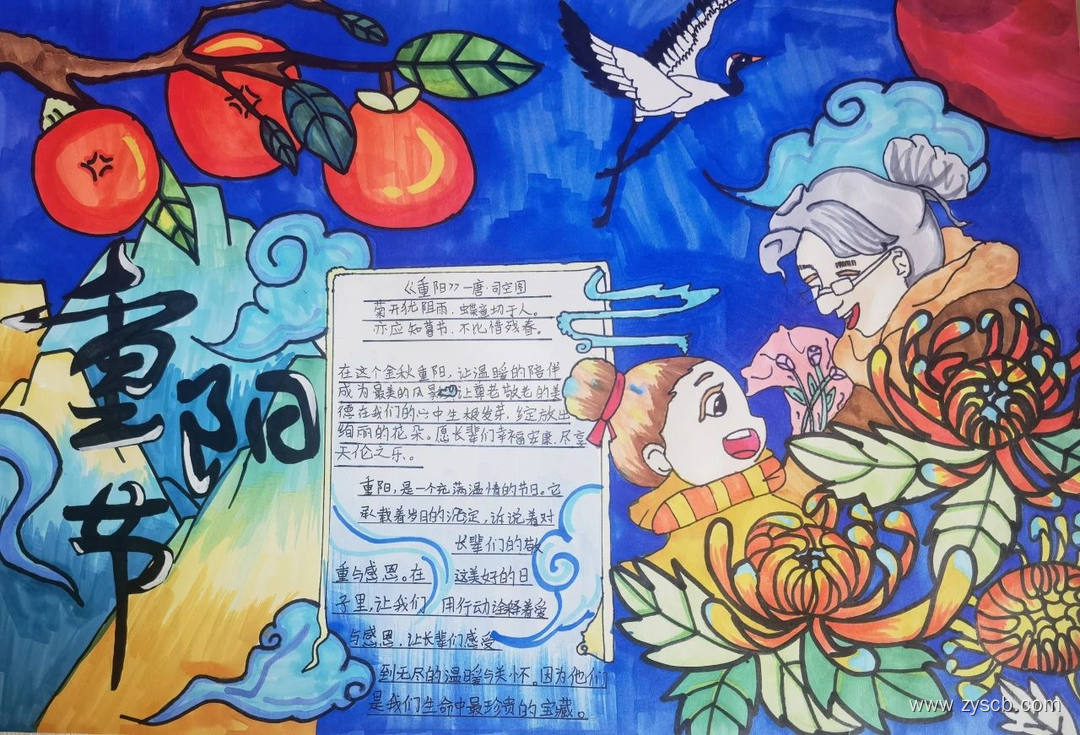 重阳节
《重阳》—唐·司空图
菊开犹阻雨，蝶意切于人。
亦应知暮节，不比惜残春。
在这个金秋重阳，让温暖的陪伴
成为最美的风景，让尊老敬老的美
德在我们的心中生根发芽，绽放出
绚丽的花朵。愿长辈们幸福安康，尽享
天伦之乐。
重阳，是一个充满温情的节日。它
承载着岁月的沉淀，诉说着对
长辈们的敬
重与感恩。在 这美好的日
子里，让我们 用行动诠释着爱
与感恩，让长辈们感受
到无尽的温暖与关怀。因为他们
是我们生命中最珍贵的宝藏。
www.zyscb.com